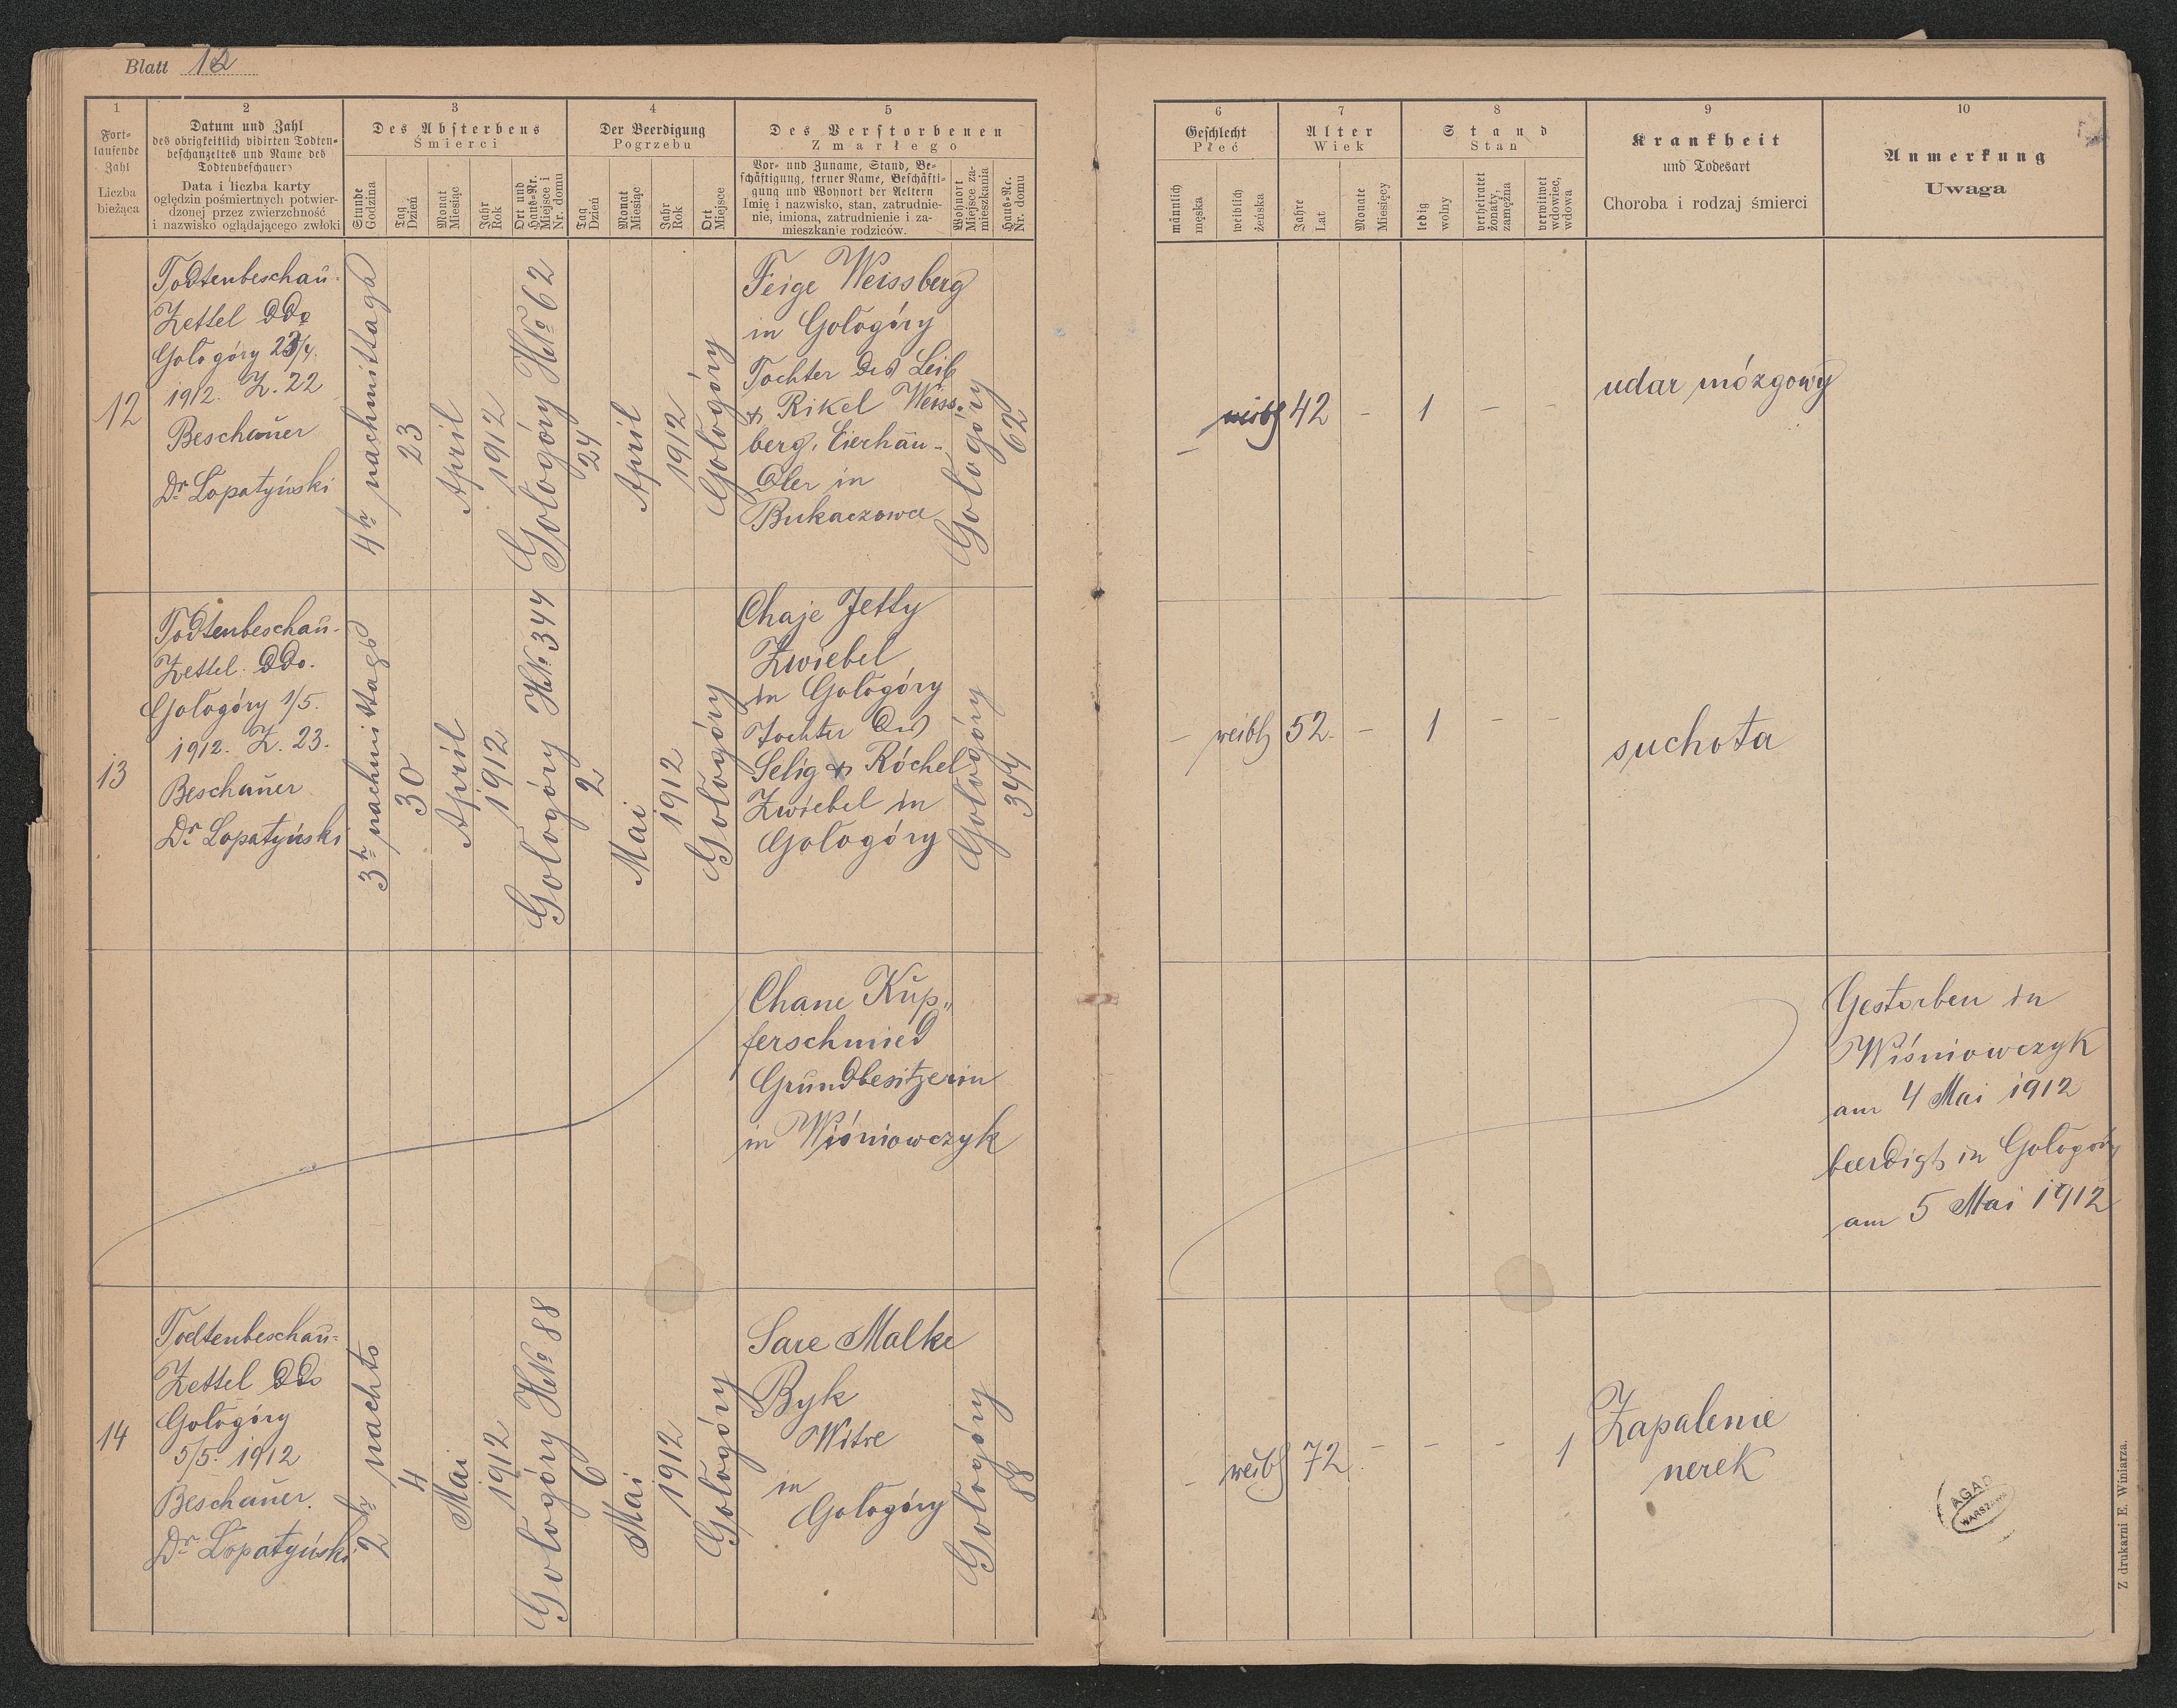 Blatt 12
1
Fort-
laufende
Zahl
Liczba
bieżąca
2
Datum und Zahl
des obrigkeitlich vidirten Todten-
beschauzettels und Name des
Todtenbeschauers
Data i liczba karty
oględzin pośmiertnych potwier-
dzonej przez zwierzchność
i nazwisko oglądającego zwłoki
3
Des Absterbens
Śmierci
Stunde
Godzina
Tag
Dzień
Monat
Miesiąc
Jahr
Rok
Ort und
Haus-Nr.
Miejsce i
Nr. domu
4
Der Beerdigung
Pogrzebu
Tag
Dzień
Monat
Miesiąc
Jahr
Rok
Ort
Miejsce
5
Des Verstorbenen
Zmarłego
Vor- und Zuname, Stand, Be-
schäftigung, ferner Name, Beschäfti-
gung und Wohnort der Aeltern
Imię i nazwisko, stan, zatrudnie-
nie, imiona, zatrudnienie i za-
mieszkanie rodziców.
Wohnort
Miejsce za-
mieszkania
Haus-Nr.
Nr. domu
6
Geschlecht
Płeć
männlich
męska
weiblich
żeńska
7
Alter
Wiek
Jahre
Lat
Monate
Miesięcy
8
Stand
Stan
ledig
wolny
verheiratet
żonaty,
zamężna
verwitwet
wdowiec,
wdowa
9
Krankheit
und Todesart
Choroba i rodzaj śmierci
10
Anmerkung
Uwaga
12
Todtenbeschau-
Zettel ddo
Gołogóry 23/4.
1912. Z. 22
Beschauer
Dr Łopatyński
4h nachmittags
23
April
1912
Gołogóry HN° 62
24
April
1912
Gołogóry
Feige Weissberg
in Gołogóry
Tochter des Leib
& Rikel Weiss-
berg, Eierhän-
dler in
Bukaczowce
Gołogóry
62
-
weibl
42
-
1
-
-
udar mózgowy
13
Todtenbeschau-
Zettel ddo.
Gołogóry 1/5.
1912. Z. 23.
Beschauer
Dr Łopatyński
3h nachmittags
30
April
1912
Gołogóry HN° 344
2
Mai
1912
Gołogóry
Chaje Jetty
Zwiebel
in Gołogóry
Tochter des
Selig & Röchel
Zwiebel in
Gołogóry
Gołogóry
344
-
weibl
52.
-
1
-
-
suchota
Chane Kup„
ferschmied
Grundbesitzerin
in Wiśniowczyk
Gestorben in
Wiśniowczyk
am 4 Mai 1912
beerdigt in Gołogóry
am 5 Mai 1912
14
Todtenbeschau-
Zettel ddo
Gołogóry
5/5. 1912
Beschauer.
Dr Łopatyński
2h nachts
4
Mai
1912
Gołogóry HN° 88
6
Mai
1912
Gołogóry
Sare Malke
Byk
Witwe
in
Gołogóry
Gołogóry
88
-
weibl
72.
-
-
-
1
Zapalenie
nerek
AGAD
WARSZAWA
Z drukarni E. Winiarza.